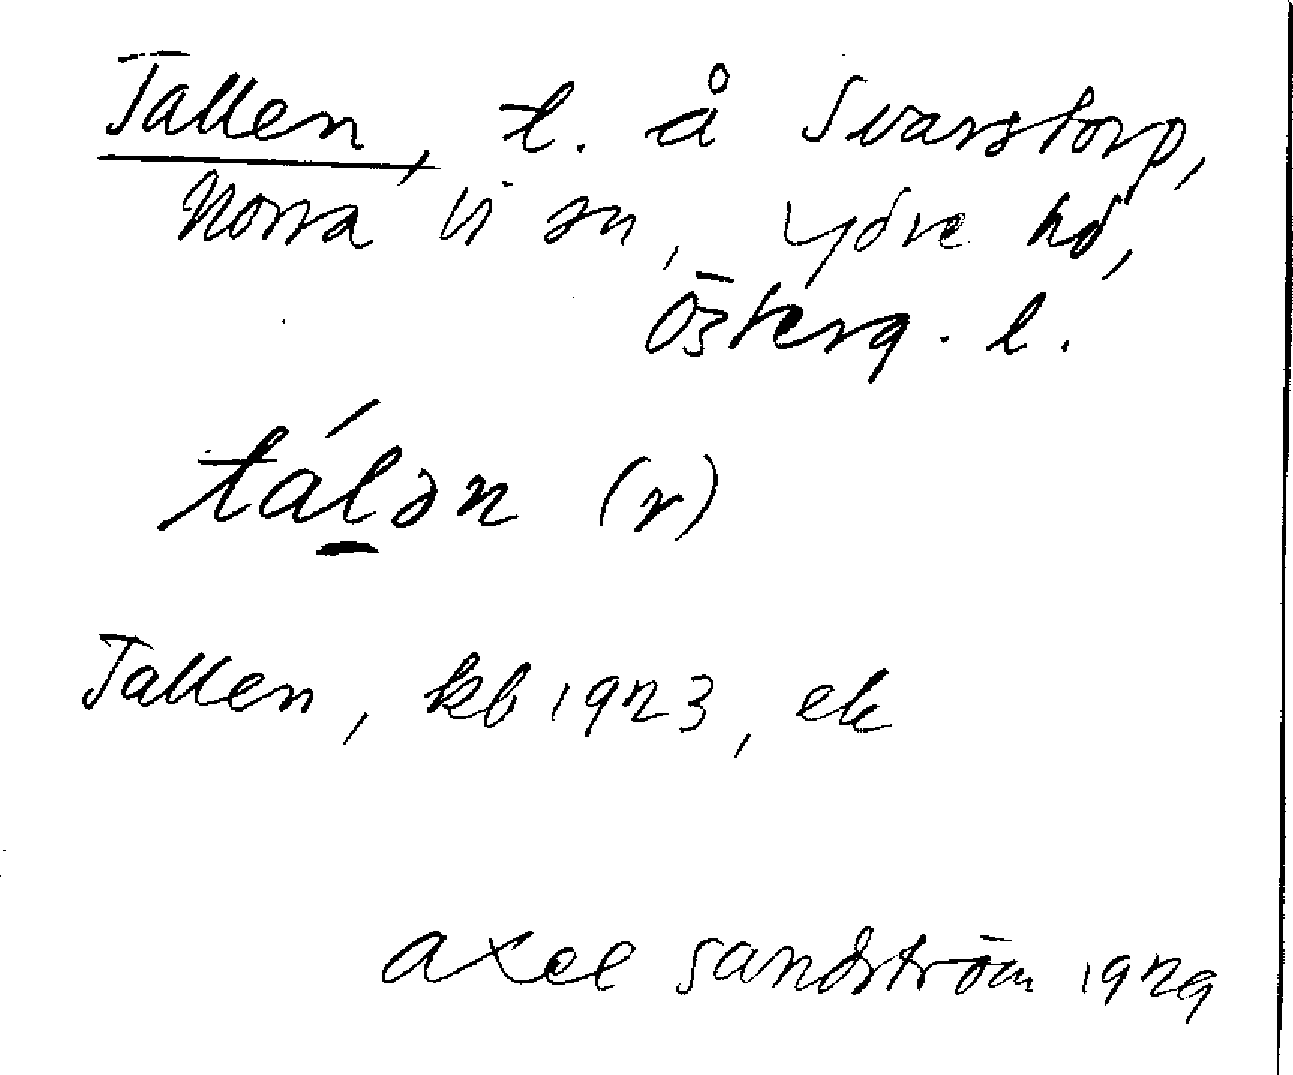 Tallen, t. å Svarstorp,
Norra Vi sn, Ydre hd,
Österg. l.
tálən (r)
Tallen, kb 1923, ek
Axel Sandström 1929